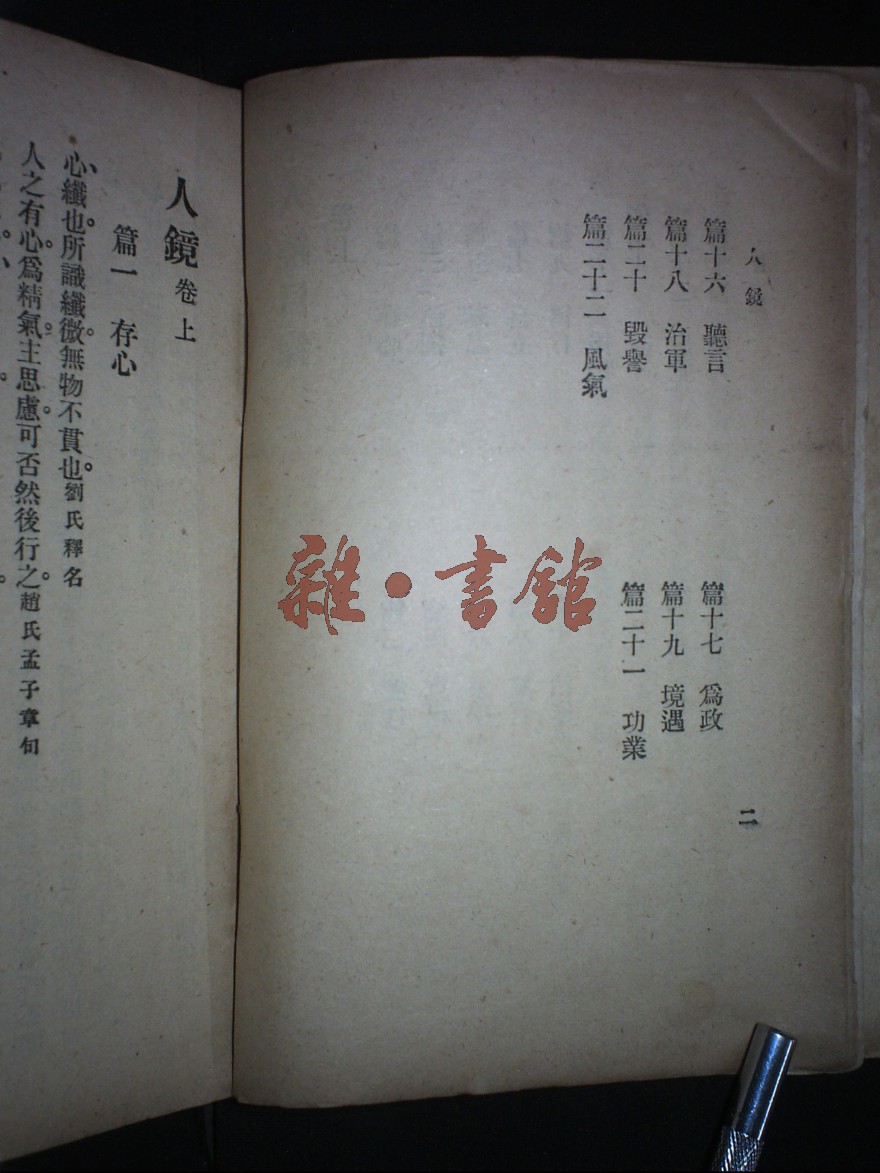 人鏡
篇十六　聽言
篇十七　爲政
篇十八　治軍
篇十九　境遇
篇二十　毀譽
篇二十一　功業
篇二十二　風氣
二
雜·書館
人鏡 卷上
篇一　存心
心纖也。所識纖微。無物不貫也。劉氏釋名
人之有心。爲精氣主。思慮可否。然後行之。趙氏孟子章句